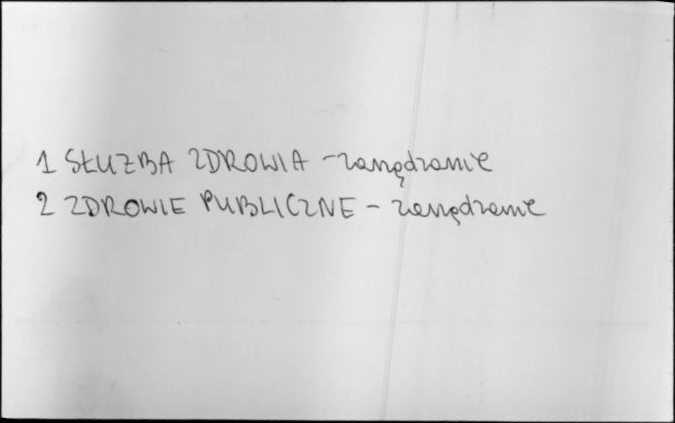 1 SŁUŻBA ZDROWIA - zarządzanie
2 ZDROWIE PUBLICZNE - zarządzanie